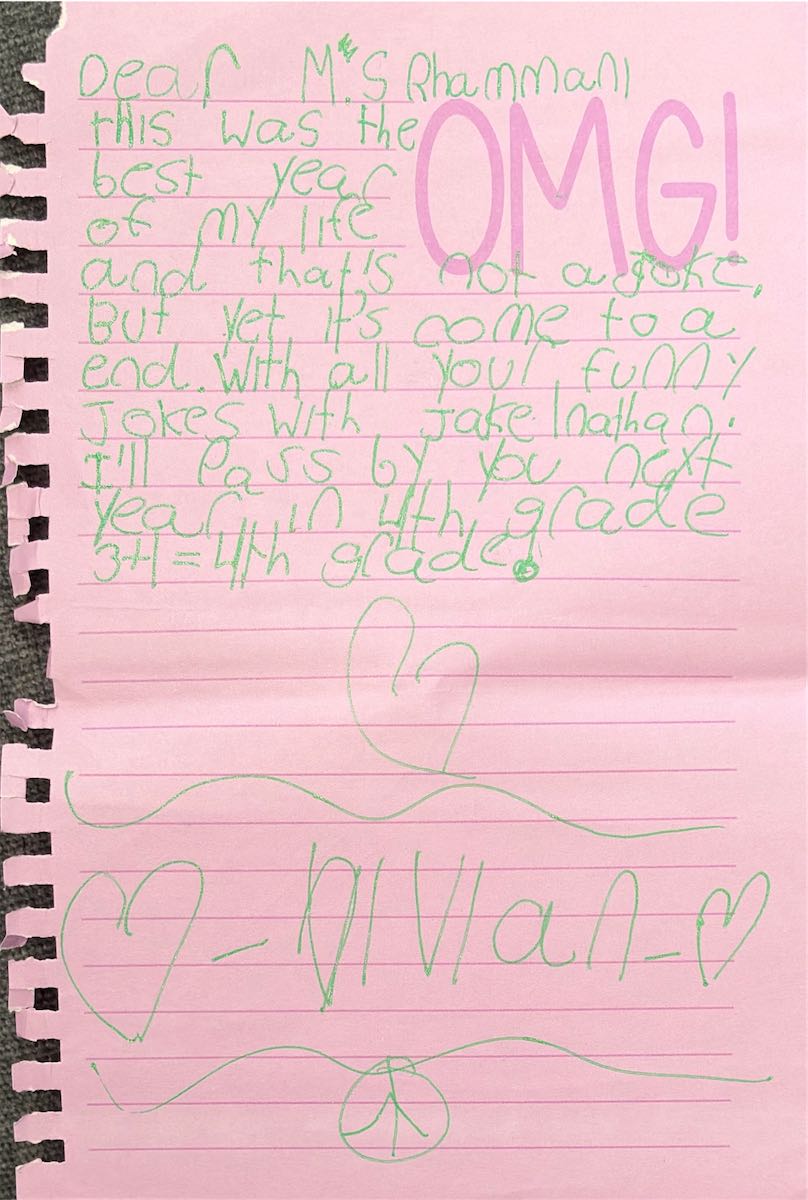 Dear M.S Rhammani
this was the
OMG!
best year
of my life
and that's not a joke,
But yet it's come to a
end. With all your funny
Jokes with Jake/nathan.
I'll Pass by you next
year in 4th grade
3+1=4th grade!
- Vivian -